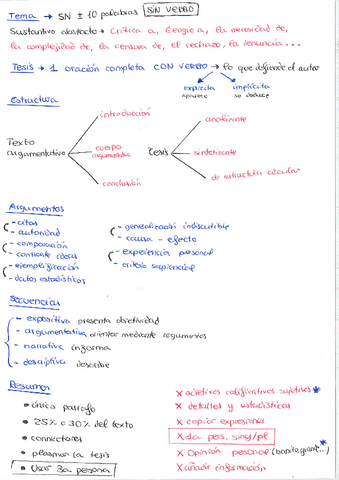 Tema → SN ± 10 palabras SIN VERBO
Sustantivo abstracto → Crítica a, Elogio a, la necesidad de,
la complejidad de, la censura de, el rechazo, la denuncia...
Tesis → 1 oración completa CON VERBO → lo que defiende el autor
explícita implícita
aparece se deduce
Estructura
introducción analizante
Texto argumentativo cuerpo argumentativo Tesis sintetizante
conclusión de estructura circular
Argumentos
- citas - generalización indiscutible
- autoridad - causa - efecto
- comparación - experiencia personal
- contraste ideas - criterio sapiencial
- ejemplificación
- datos estadísticos
Secuencias
- expositiva presenta objetividad
- argumentativa orientar mediante argumentos
- narrativa informa
- descriptiva describe
Resumen X adjetivos calificativos subjetivos *
• único párrafo X detalles y estadísticas
• 25% o 30% del texto X copiar expresiones
• conectores X 1a pers. sing/pl
• plasmar la tesis X Opinión personal (bonito, grande...) *
• Usar 3a persona X añadir información